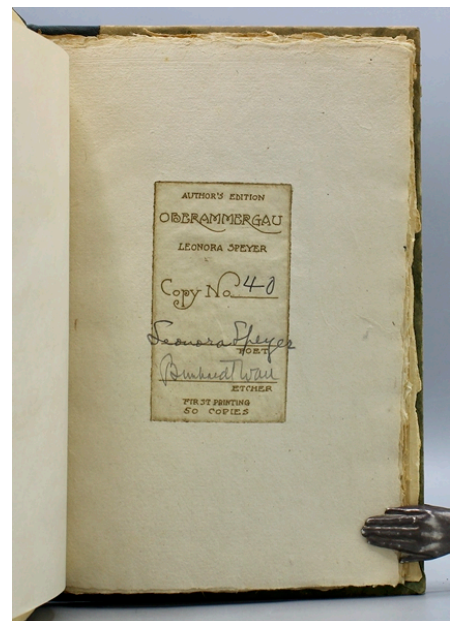 AUTHOR'S EDITION
OBERAMMERGAU
LEONORA SPEYER
Copy No. 40
Leonora Speyer
POET
Bernhardt Wall
ETCHER
FIRST PRINTING
50 COPIES